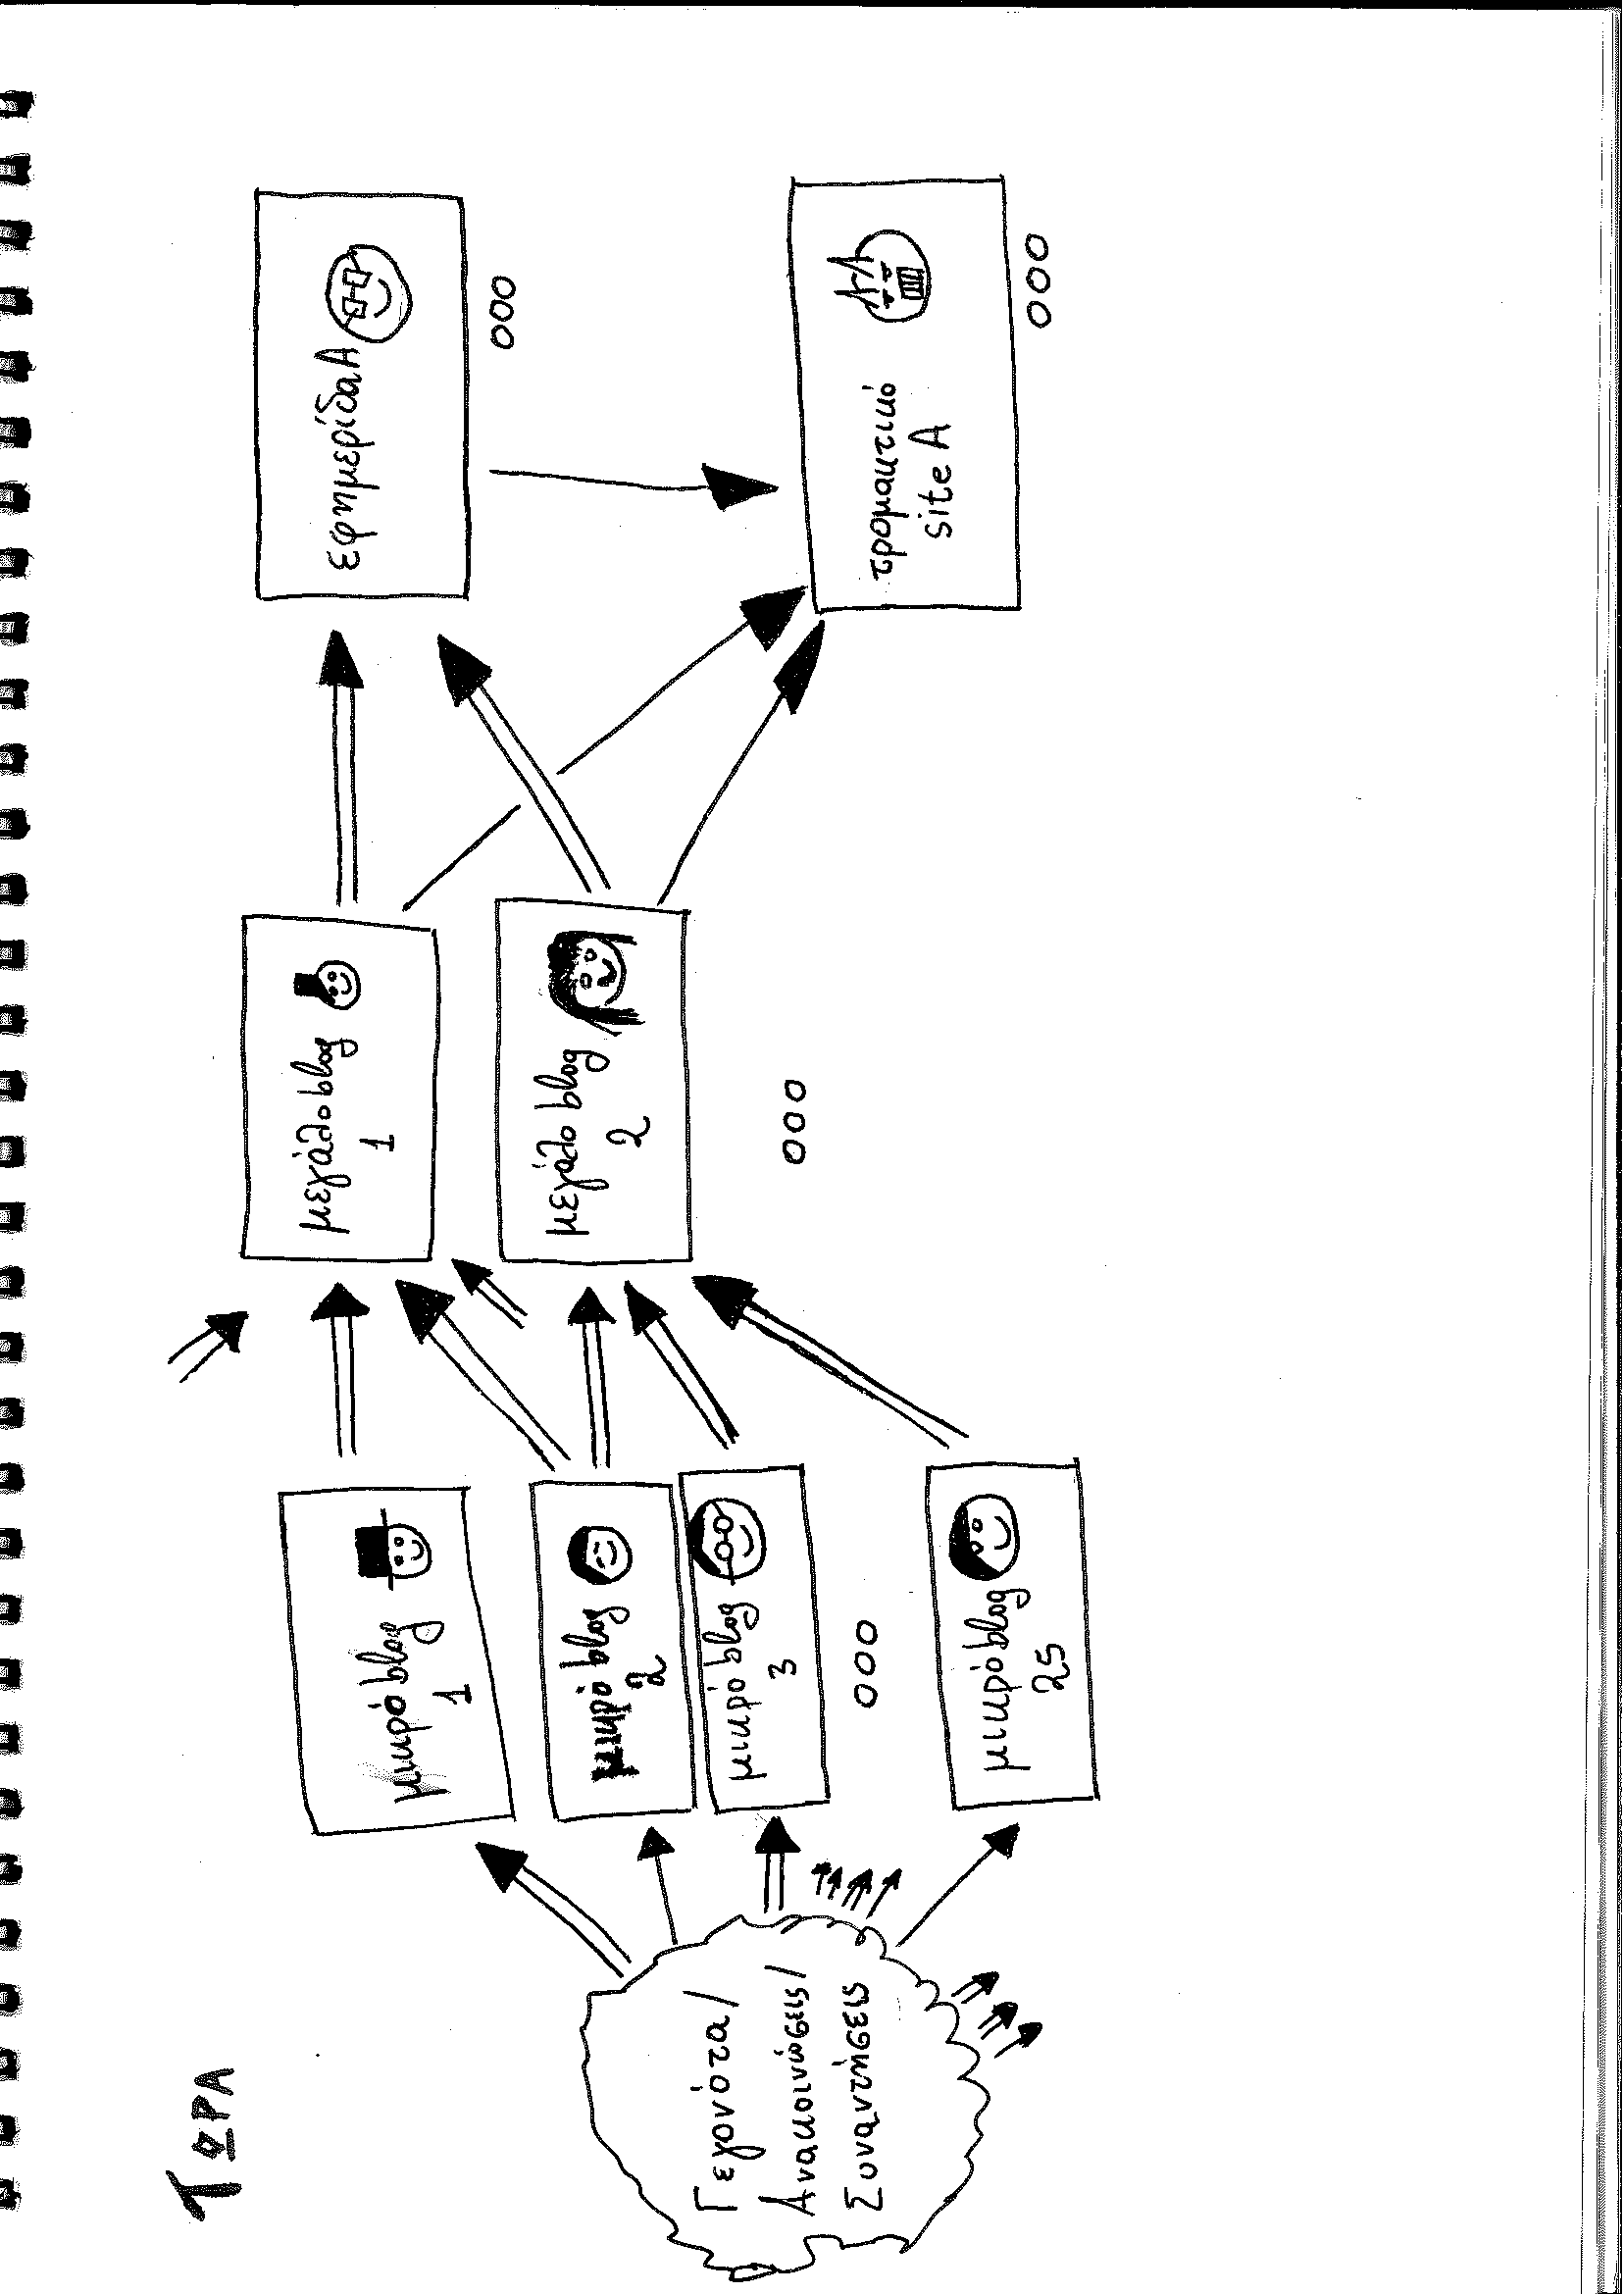 ΤΩΡΑ
Γεγονότα /
Ανακοινώσεις /
Συναντήσεις
μικρό blog
1
μικρό blog
2
μικρό blog
3
ооо
μικρό blog
25
μεγάλο blog
1
μεγάλο blog
2
ооо
εφημερίδα Α
ооо
τρομακτικό
site A
ооо